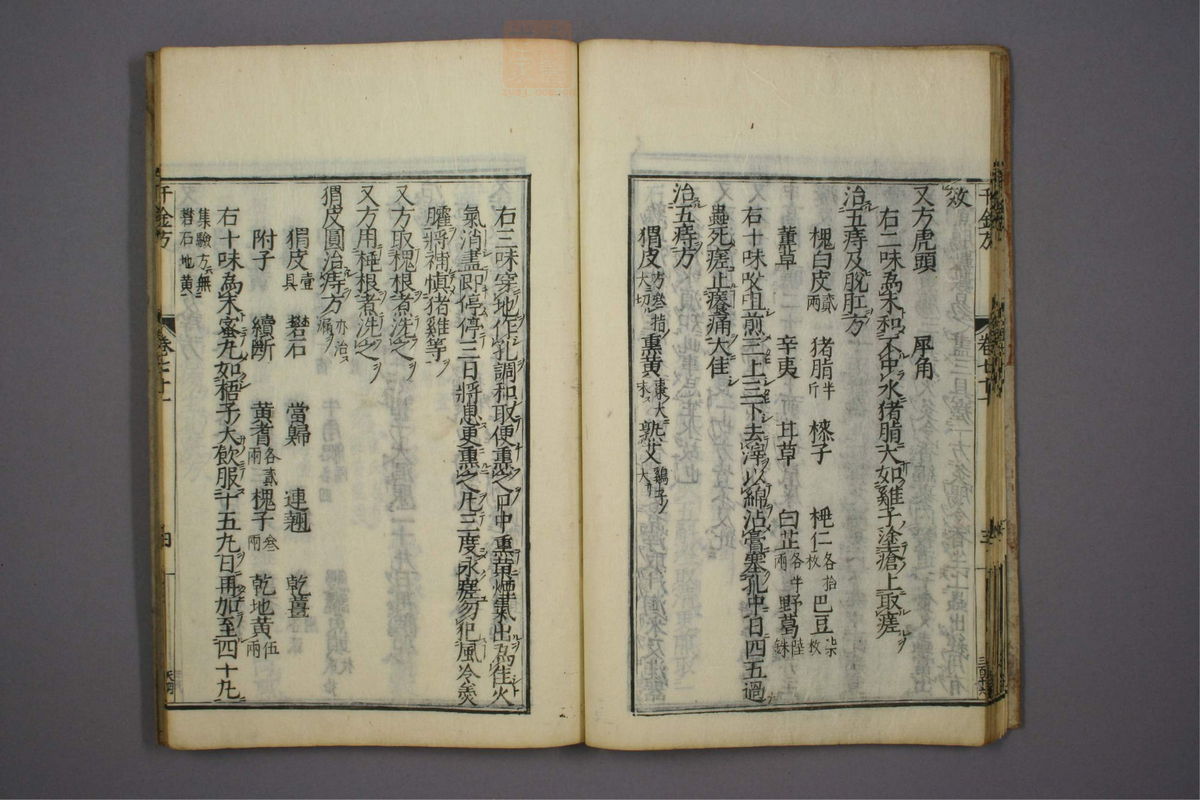 效
又方虎頭　犀角
右二味為末和不中水猪脂大如雞子塗瘡上取瘥
治五痔及脫肛方
槐白皮貳兩　猪脂半斤　楝子　桃仁各拾枚　巴豆枚
薰草　辛夷　甘草　白芷各半兩　野葛陸銖
右十味㕮咀煎三上三下去滓以綿沾膏塞孔中日四五過
蟲死瘥止癢痛大佳
治五痔方
猬皮方叁指大切　熏黃棗大　熟艾鷄子大
右三味穿地作孔調和取便熏之口中熏黃煙氣出為佳火
氣消盡即停停三日將息更熏之凡三度永瘥勿犯風冷羹
臛將補慎猪雞等
又方取槐根煮洗之
又方用根煮洗之
猬皮圓治痔方亦治漏
猬皮壹具　礬石　當歸　連翹　乾薑
附子　續斷　黃耆各貳兩　槐子叁兩　乾地黃伍兩
右十味為末蜜丸如梧子大飲服十五丸日再加至四十丸
集驗方無礬石地黃
千金方　卷七十一